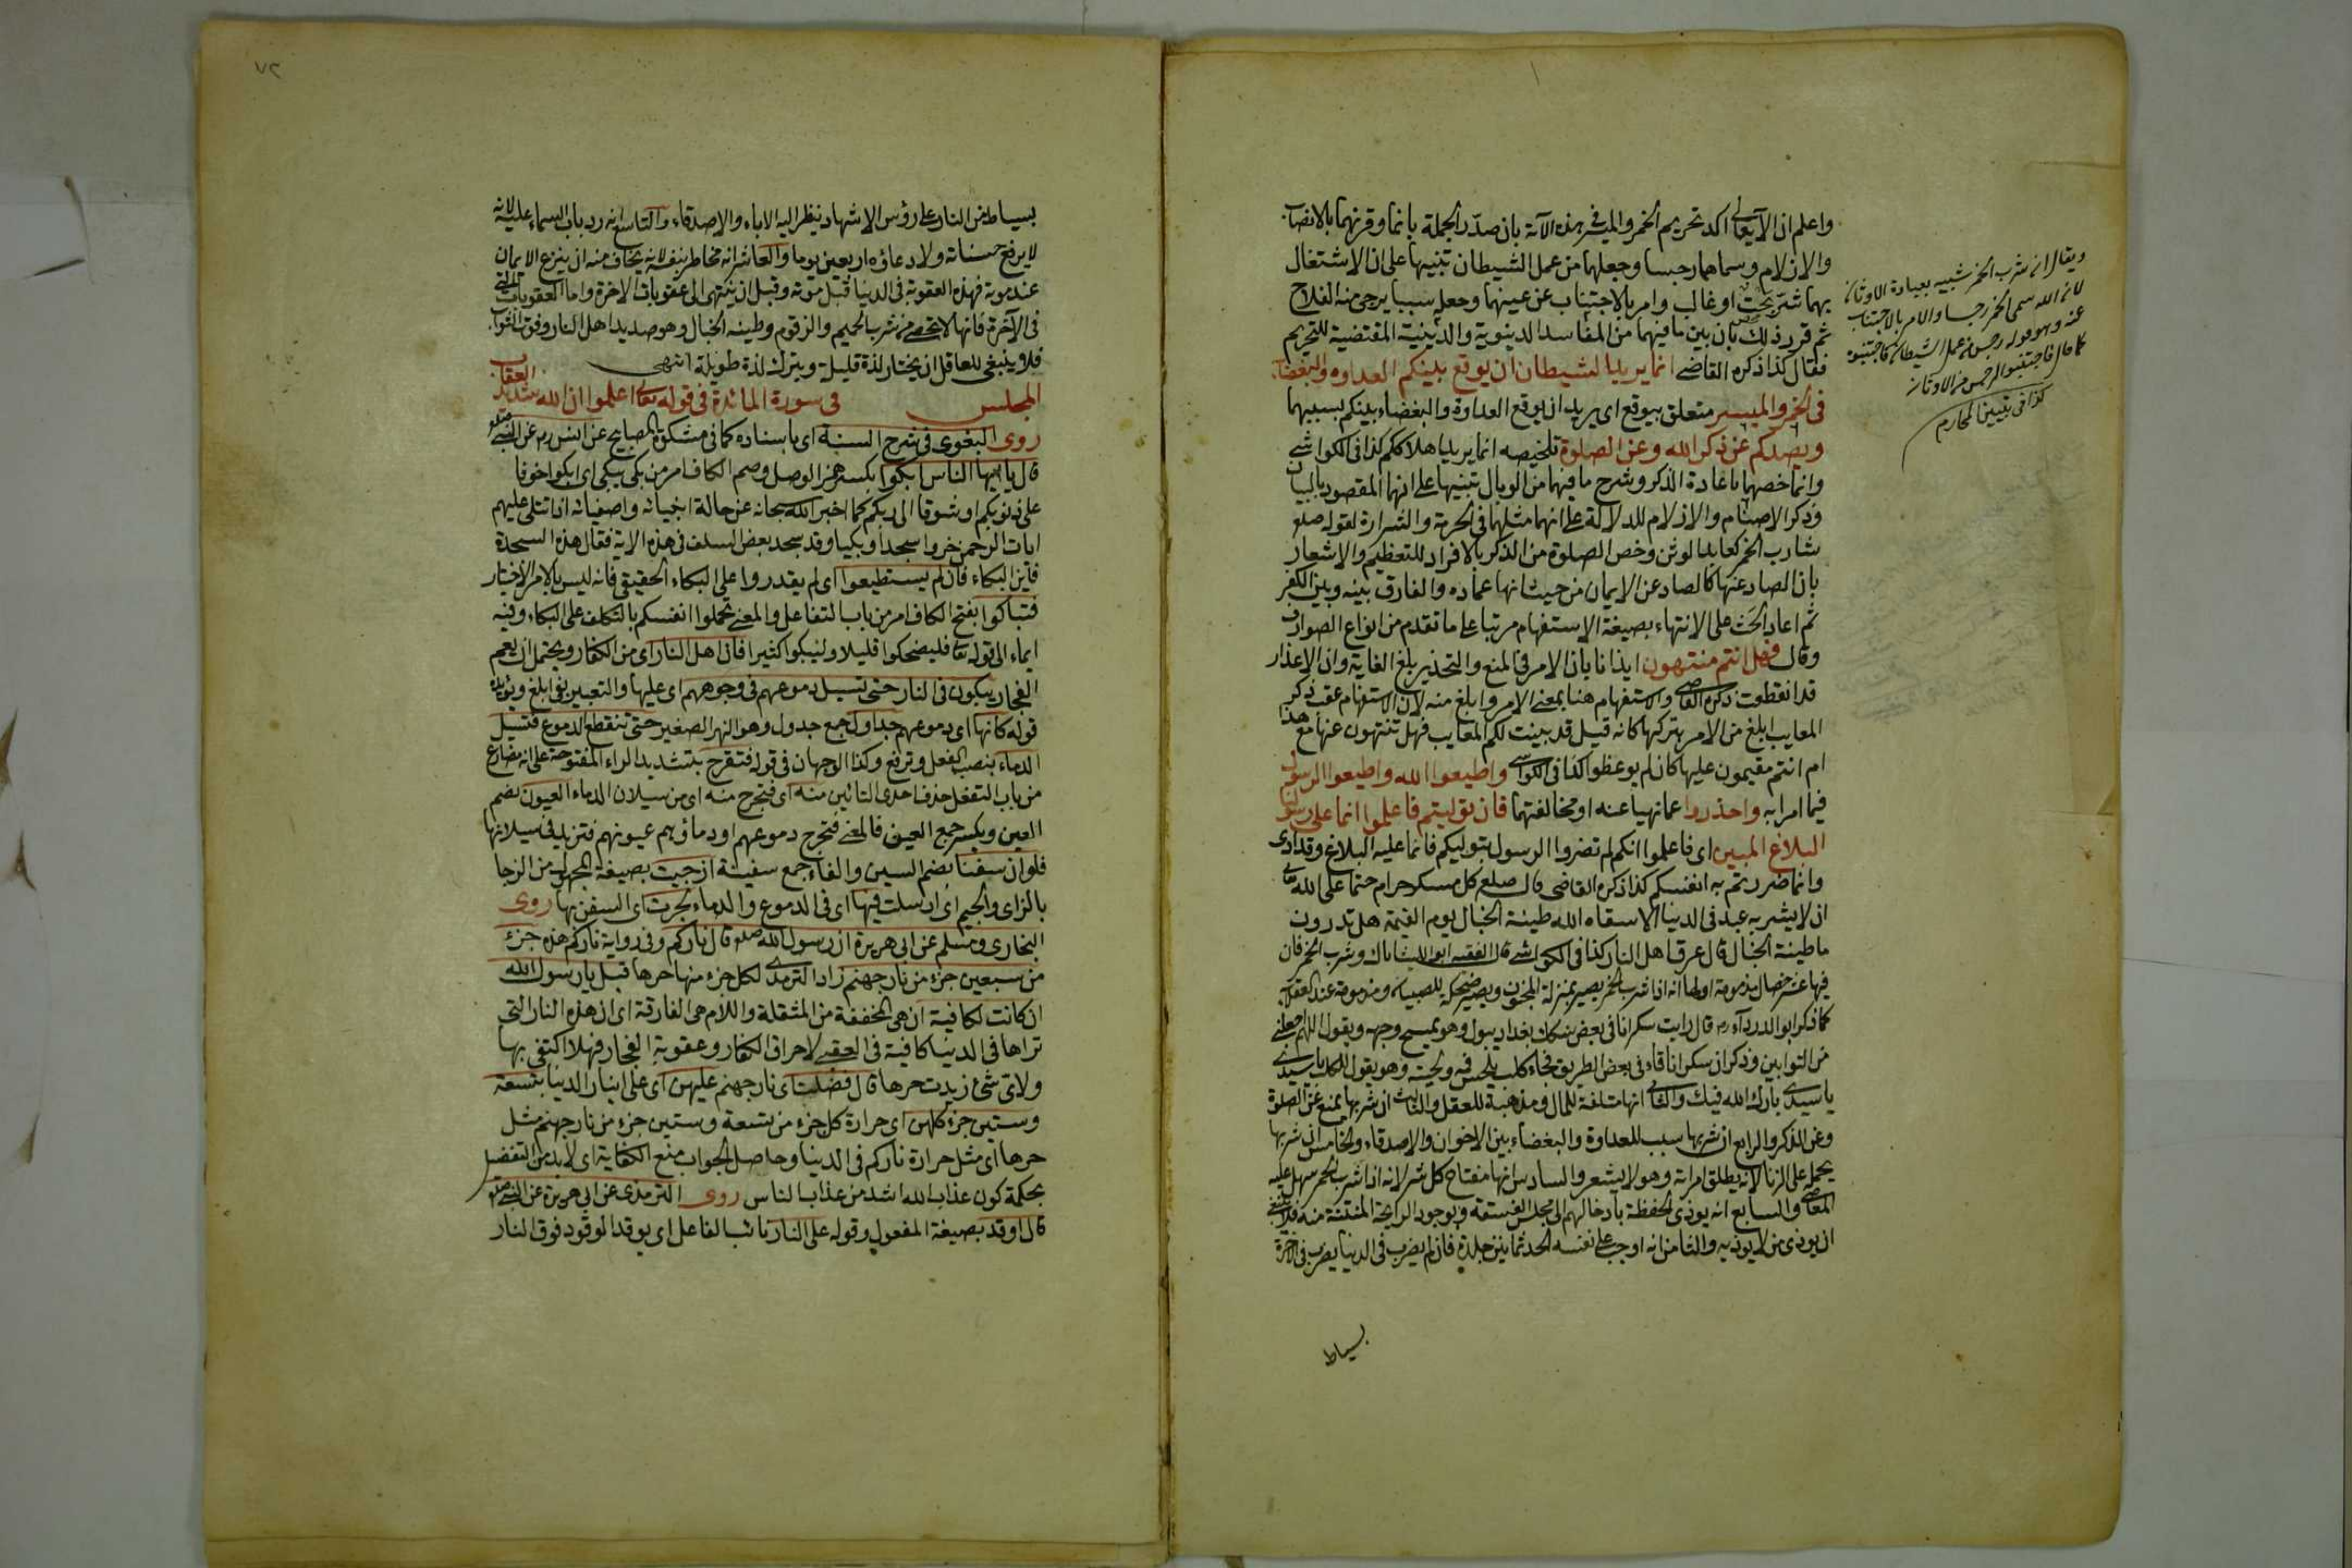 واعلم ان الله تعالى اكد تحريم الخمر والميسر في هذه الآية بان صدر الجملة بانما وقرنهما بالانصاب
والازلام وسماهما رجسا وجعلهما من عمل الشيطان تنبيها على ان الاشتغال
بهما شر بحت او غالب وامر بالاجتناب عن عينهما وجعله سببا يرجى منه الفلاح
ثم قرر ذلك بان بين ما فيهما من المفاسد الدنيوية والدينية المقتضية للتحريم
فقال كذا ذكره القاضي انما يريد الشيطان ان يوقع بينكم العداوة والبغضاء
في الخمر والميسر متعلق بيوقع اي يريد ان يوقع العداوة والبغضاء بينكم بسببهما
ويصدكم عن ذكر الله وعن الصلوة تلخيصه انما يريد اهلاككم كذا في الكواشي
وانما خصهما باعادة الذكر وشرح ما فيهما من الوبال تنبيها على انهما المقصود بالبيان
وذكر الاصنام والازلام للدلالة على انهما مثلهما في الحرمة والشرارة لقوله صلعم
شارب الخمر كعابد الوثن وخص الصلوة من الذكر بالافراد للتعظيم والاشعار
بان الصاد عنها كالصاد عن الايمان من حيث انها عماده والفارق بينه وبين الكفر
ثم اعاد الحث على الانتهاء بصيغة الاستفهام مرتبا على ما تقدم من انواع الصوارف
وقال فهل انتم منتهون ايذانا بان الامر في المنع والتحذير بلغ الغاية وان الاعذار
قد انقطعت ذكره القاضي والاستفهام هنا بمعنى الامر وابلغ منه لان الاستفهام عقب ذكر
المعايب ابلغ من الامر بتركها كانه قيل قد بينت لكم المعايب فهل تنتهون عنها مع هذا
ام انتم مقيمون عليها كان لم يوعظوا كذا في الكواشي واطيعوا الله واطيعوا الرسول
فيما امرا به واحذروا عما نهيا عنه او مخالفتهما فان توليتم فاعلموا انما على رسولنا
البلاغ المبين اي فاعلموا انكم لم تضروا الرسول بتوليكم فانما عليه البلاغ وقد ادى
وانما ضررتم به انفسكم كذا ذكره القاضي قال صلعم كل مسكر حرام حتما على الله تعالى
ان لا يشربه عبد في الدنيا الا سقاه الله طينة الخبال يوم القيمة هل تدرون
ما طينة الخبال قال عرق اهل النار كذا في الكواشي قال الفقيه ابو الليث اياك وشرب الخمر فان
فيها عشر خصال مذمومة اولها انه اذا شرب الخمر يصير بمنزلة المجنون ويصير ضحكة للصبيان ومذموما عند العقلاء
كما ذكر ابو الدرداء رم قال رايت سكرانا في بعض سكك بغداد يبول وهو يمسح وجهه ويقول اللهم اجعلني
من التوابين وذكر ان سكرانا قاء في بعض الطريق فجاء كلب يلحس فمه ولحيته وهو يقول للكلب يا سيدي
يا سيدي بارك الله فيك والثاني انها متلفة للمال ومذهبة للعقل والثالث ان شربها يمنع عن الصلوة
وعن الذكر والرابع ان شربها سبب للعداوة والبغضاء بين الاخوان والاصدقاء والخامس ان شربها
يحمله على الزنا لانه يطلق امراته وهو لا يشعر والسادس انها مفتاح كل شر لانه اذا شرب الخمر سهل عليه
المعاصي والسابع انه يوذي الحفظة بادخالهم الى مجلس الفسقة وبوجود الرايحة المنتنة منه فلا ينبغي
ان يوذي من لا يوذيه والثامن انه اوجب على نفسه الحد ثمانين جلدة فان لم يضرب في الدنيا يضرب في الآخرة
بسياط
ويقال ان شرب الخمر شبيه بعبادة الاوثان
لان الله سمى الخمر رجسا والامر بالاجتناب
عنه وهو قوله رجس من عمل الشيطان فاجتنبوه
كما قال فاجتنبوا الرجس من الاوثان
كذا في تبيين المحارم
٧٢
بسياط من النار على رؤس الاشهاد ينظر اليه الاباء والاصدقاء والتاسع انه رد باب السماء عليه لانه
لا يرفع حسناته ولا دعاؤه اربعين يوما والعاشر انه مخاطر بنفسه لانه يخاف منه ان ينزع الايمان
عند موته فهذه العقوبة في الدنيا قبل موته وقبل ان ينتهى الى عقوبات الاخرة واما العقوبات التي
في الآخرة فانها لا تحصى من شرب الحميم والزقوم وطينة الخبال وهو صديد اهل النار وفوت الثواب
فلا ينبغي للعاقل ان يختار لذة قليلة ويترك لذة طويلة انتهى
المجلس في سورة المائدة في قوله تعالى اعلموا ان الله شديد العقاب
روى البغوي في شرح السنة اي باسناده كما في مشكوة المصابيح عن انس رم عن النبي صلعم
قال يا ايها الناس ابكوا بكسر همز الوصل وضم الكاف امر من بكى يبكي اي ابكوا خوفا
على ذنوبكم او شوقا الى ربكم كما اخبر الله سبحانه عن حالة انبيائه واصفيائه اذا تتلى عليهم
ايات الرحمن خروا سجدا وبكيا وقد سجد بعض السلف في هذه الاية فقال هذه السجدة
فاين البكاء فان لم يستطيعوا اي لم يقدروا على البكاء الحقيقي فانه ليس بالامر الاختيار
فتباكوا بفتح الكاف امر من باب التفاعل والمعنى تحملوا انفسكم بالتكلف على البكاء وفيه
ايماء الى قوله تعالى فليضحكوا قليلا وليبكوا كثيرا فان اهل النار اي من الكفار ويحتمل ان يعم
الفجار يبكون في النار حتى تسيل دموعهم في وجوههم اي عليها والتعبير بفي ابلغ ويؤيده
قوله كانها اي دموعهم جداول جمع جدول وهو النهر الصغير حتى تنقطع الدموع فتسيل
الدماء بنصب الفعل وترفع وكذا الوجهان في قوله فتقرح بتشديد الراء المفتوحة على انه مضارع
من باب التفعل حذف احدى التائين منه اي فتجرح منه اي من سيلان الدماء العيون بضم
العين ويكسر جمع العين فالمعنى فتجرح دموعهم او دماؤهم عيونهم فتزيد في سيلانها
فلو ان سفنا بضم السين والفاء جمع سفينة ازجيت بصيغة المجهول من الازجا
بالزاي والجيم اي ارسلت فيها اي في الدموع والدماء لجرت اي السفن بها روى
البخاري ومسلم عن ابي هريرة ان رسول الله صلعم قال ناركم وفي رواية ناركم هذه جزء
من سبعين جزء من نار جهنم زاد الترمذي لكل جزء منها حرها قيل يا رسول الله
ان كانت لكافية ان هي المخففة من المثقلة واللام هي الفارقة اي ان هذه النار التي
تراها في الدنيا كافية في العقبى لاحراق الكفار وعقوبة الفجار فهلا اكتفى بها
ولاي شيء زيدت حرها قال فضلت اي نار جهنم عليهن اي على انيار الدنيا بتسعة
وستين جزء كلهن اي حرارة كل جزء من تسعة وستين جزء من نار جهنم مثل
حرها اي مثل حرارة ناركم في الدنيا وحاصل الجواب منع الكفاية اي لابد من التفضيل
بحكمة كون عذاب الله اشد من عذاب الناس روى الترمذي عن ابي هريرة عن النبي صلعم
قال اوقد بصيغة المفعول وقوله على النار نائب الفاعل اي يوقد الوقود فوق النار